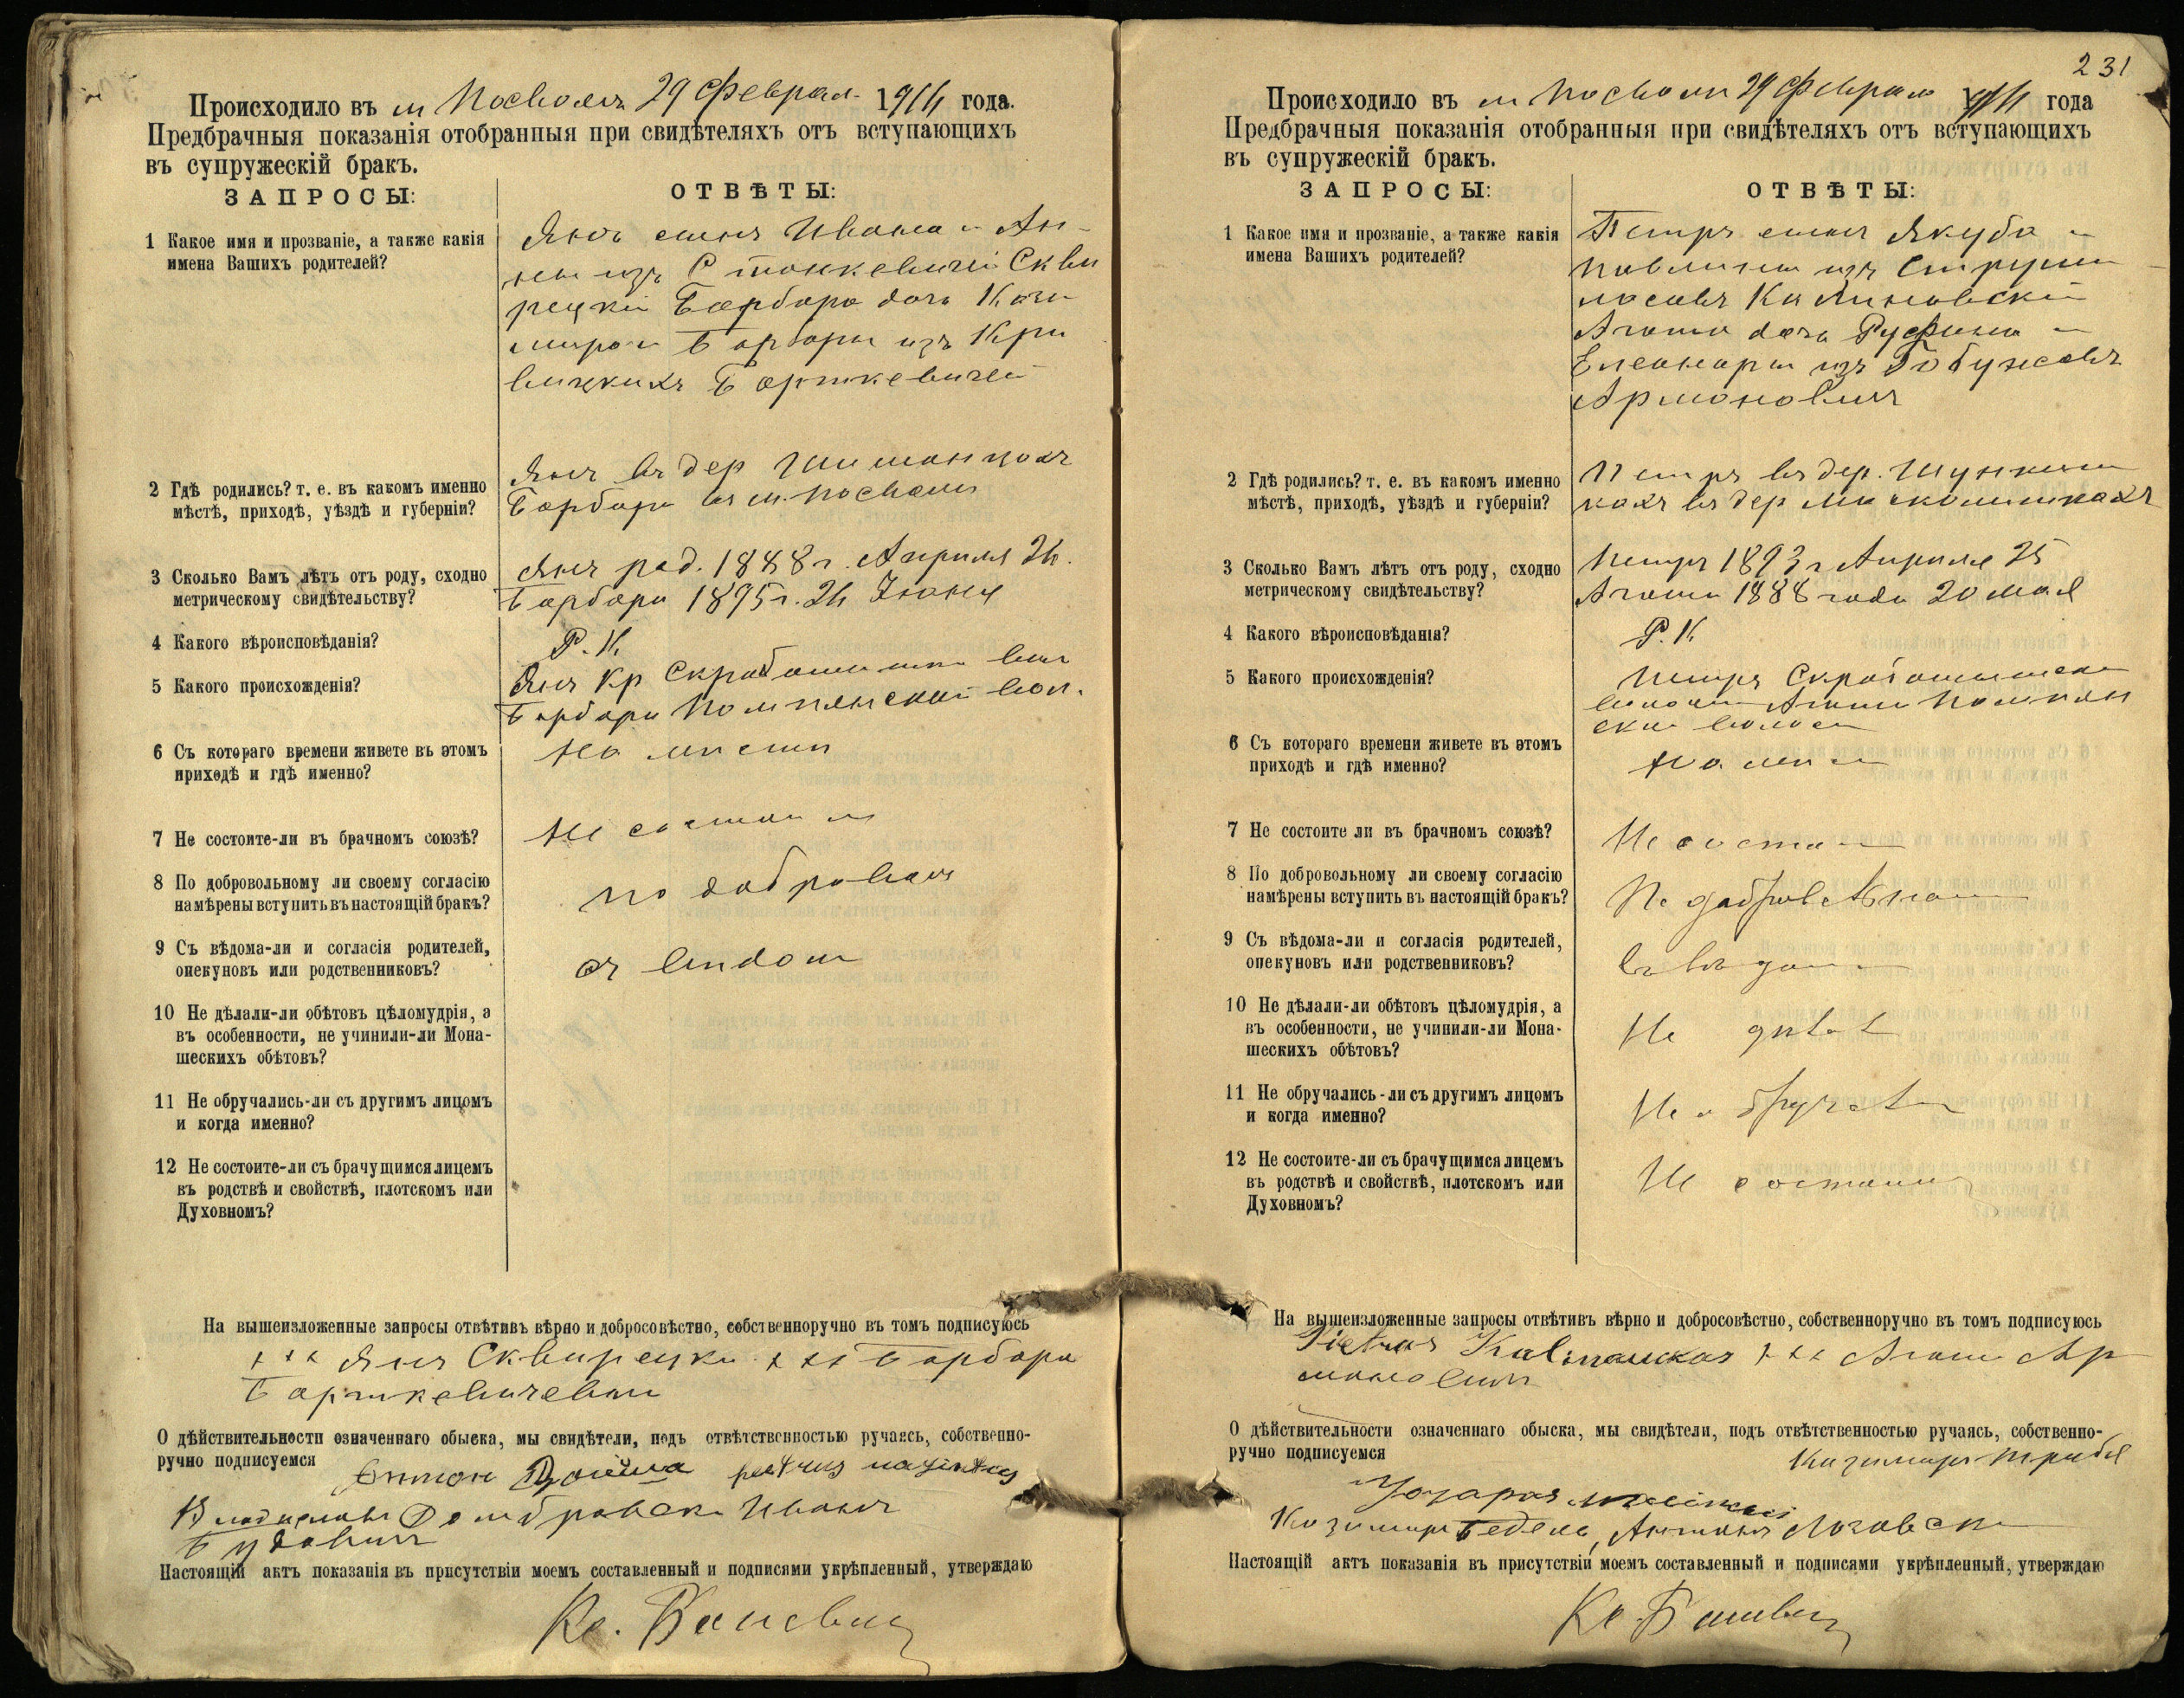 Происходило въ м Посволѣ 29 Феврал 1914 года.
Предбрачныя показанія отобранныя при свидѣтеляхъ отъ вступающихъ
въ супружескій бракъ.
ЗАПРОСЫ: ОТВѢТЫ:
1 Какое имя и прозваніе, а также какія
имена Вашихъ родителей?
Янъ сынъ Ивана и Ан-
ны изъ Станкевичей Скви
рецкій Барбара дочь Кази
мира и Барбары изъ Кри
вицкихъ Барткевичей
2 Гдѣ родились? т. е. въ какомъ именно
мѣстѣ, приходѣ, уѣздѣ и губерніи?
Янъ въ дер
Барбара въ м. Посволѣ
3 Сколько Вамъ лѣтъ отъ роду, сходно
метрическому свидѣтельству?
Янъ род. 1888 г. Апрѣля 24.
Барбара 1895 г. 24 Іюня
4 Какого вѣроисповѣданія?
Р. К.
5 Какого происхожденія?
Янъ Кр
Барбара Помпянской вол.
6 Съ котораго времени живете въ этомъ
приходѣ и гдѣ именно?
На мѣстѣ
7 Не состоите-ли въ брачномъ союзѣ?
Не состоим
8 По добровольному ли своему согласію
намѣрены вступить въ настоящій бракъ?
по
9 Съ вѣдома-ли и согласія родителей,
опекуновъ или родственниковъ?
съ вѣдома
10 Не дѣлали-ли обѣтовъ цѣломудрія, а
въ особенности, не учинили-ли Мона-
шескихъ обѣтовъ?
11 Не обручались-ли съ другимъ лицомъ
и когда именно?
12 Не состоите-ли съ брачущимся лицемъ
въ родствѣ и свойствѣ, плотскомъ или
Духовномъ?
На вышеизложенные запросы отвѣтивъ вѣрно и добросовѣстно, собственноручно въ томъ подписуюсь
+++ Янъ Сквирецки +++ Барбара
Барткевичевна
О дѣйствительности означеннаго обыска, мы свидѣтели, подъ отвѣтственностью ручаясь, собственно-
ручно подписуемся
Антон
Владиславъ Домбровски Иванъ
Настоящій актъ показанія въ присутствіи моемъ составленный и подписями укрѣпленный, утверждаю
Кс.
231
Происходило въ м Посволѣ 29 Феврал 1914 года
Предбрачныя показанія отобранныя при свидѣтеляхъ отъ вступающихъ
въ супружескій бракъ.
ЗАПРОСЫ: ОТВѢТЫ:
1 Какое имя и прозваніе, а также какія
имена Вашихъ родителей?
Петръ сынъ Якуба и
Павлины изъ
Калиновскій
Агата дочь Руфина и
Елеонары изъ
Армоновичъ
2 Гдѣ родились? т. е. въ какомъ именно
мѣстѣ, приходѣ, уѣздѣ и губерніи?
Петръ въ дер.
въ дер
3 Сколько Вамъ лѣтъ отъ роду, сходно
метрическому свидѣтельству?
Петръ 1893 г Апрѣля 25
Агата 1888 года 20 мая
4 Какого вѣроисповѣданія?
Р. К
5 Какого происхожденія?
Петръ
Агата Помпян
ской волос
6 Съ котораго времени живете въ этомъ
приходѣ и гдѣ именно?
На мѣс
7 Не состоите ли въ брачномъ союзѣ?
Не состо
8 По добровольному ли своему согласію
намѣрены вступить въ настоящій бракъ?
По
9 Съ вѣдома-ли и согласія родителей,
опекуновъ или родственниковъ?
10 Не дѣлали-ли обѣтовъ цѣломудрія, а
въ особенности, не учинили-ли Мона-
шескихъ обѣтовъ?
Не
11 Не обручались-ли съ другимъ лицомъ
и когда именно?
Не
12 Не состоите-ли съ брачущимся лицемъ
въ родствѣ и свойствѣ, плотскомъ или
Духовномъ?
Не состоим
На вышеизложенные запросы отвѣтивъ вѣрно и добросовѣстно, собственноручно въ томъ подписуюсь
+++ Агата Ар
моновичъ
О дѣйствительности означеннаго обыска, мы свидѣтели, подъ отвѣтственностью ручаясь, собственно-
ручно подписуемся
Казимиръ
Казимиръ Бедель, Антонъ
Настоящій актъ показанія въ присутствіи моемъ составленный и подписями укрѣпленный, утверждаю
Кс.